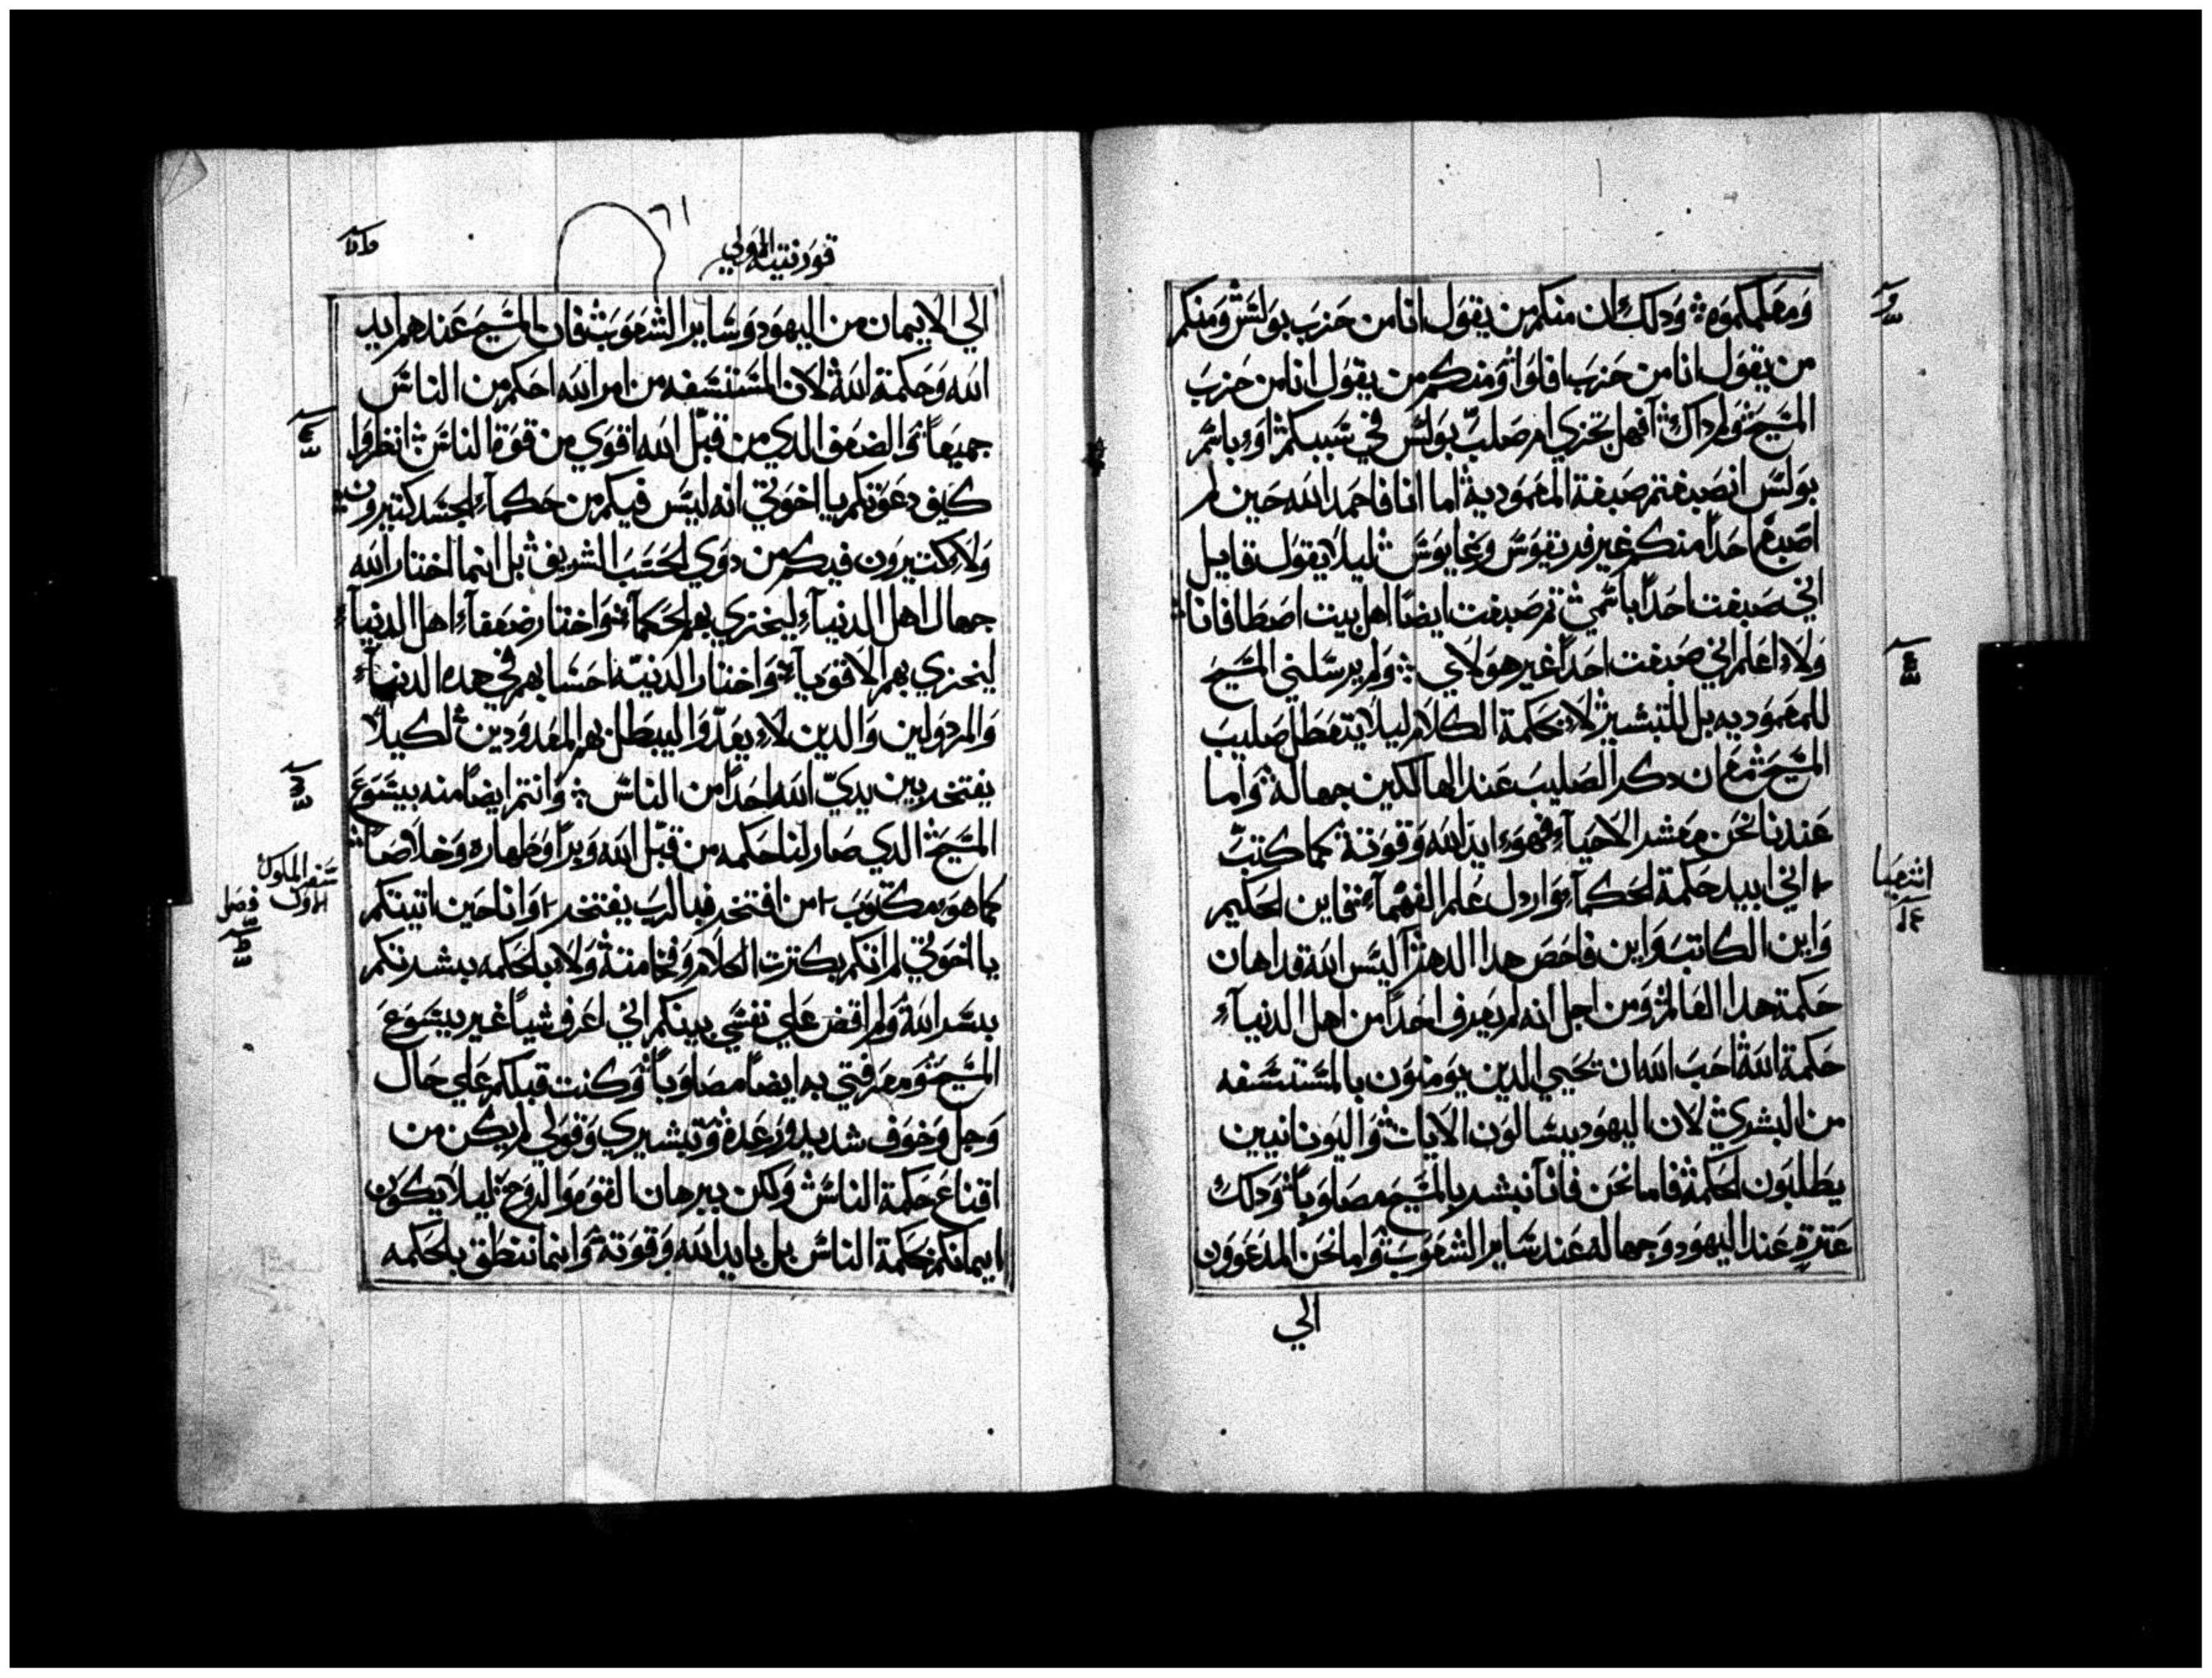 ومعلمكموه ودلك ان منكم من يقول انا من حزب بولس ومنكم
من يقول انا من حزب افلوا ومنكم من يقول انا من حزب
المسيح ولم داك افهل تجزي ام صلب بولس في سببكم او باسم
بولس انصبغتم صبغة المعمودية اما انا فاحمد الله حين لم
اصبغ احدا منكم غير قريقوس وغايوس ليلا يقول قايل
اني صبغت احدا باسمي ثم صبغت ايضا اهل بيت اصطافانا
ولا اعلم اني صبغت احدا غير هولاي ولم يرسلني المسيح
للمعموديه بل للتبشير لا بحكمة الكلام ليلا يتعطل صليب
المسيح مع ان دكر الصليب عند الهالكين جهالة واما
عندنا نحن معشر الاحياء فهو ايد الله وقوته كما كتب
اني ابيد حكمة الحكماء واردل علم الفهماء فاين الحكيم
واين الكاتب واين فاحص هدا الدهر اليس الله قد اهان
حكمة هدا العالم ومن اجل انه لم يعرف احدا من اهل الدنياء
حكمة الله احب الله ان تحيي الدين يومنون بالمستسفه
من البشري لان اليهود يسالون الايات واليونانيين
يطلبون الحكمة فاما نحن فانا نبشر بالمسيح مصلوبا ودلك
عترة عند اليهود وجهالة عند ساير الشعوب واما نحن المدعوون
الي
اشعيا
قورنتيه الاولي
٦١
الي الايمان من اليهود وساير الشعوب فان المسيح عندهم ايد
الله وحكمة الله لان المستسفه من امر الله احكم من الناس
جميعا والضعف الدي من قبل الله اقوي من قوة الناس انظروا
كيف دعوتكم يا اخوتي انه ليس فيكم من حكماء الجسد كتيرون
ولا كتيرون فيكم من دوي الحسب الشريف بل انما اختار الله
جهال اهل الدنياء ليخزي بهم الحكماء واختار ضعفاء اهل الدنياء
ليخزي بهم الاقوياء واختار الدنيه احسابهم في هده الدنياء
والمردولين والدين لا يعدوا ليبطل بهم المعدودين لكيلا
يفتخر بين يدي الله احدا من الناس وانتم ايضا منه بيسوع
المسيح الدي صار لنا حكمه من قبل الله وبرا وطهاره وخلاصا
كما هو مكتوب من افتخر فبالرب يفتخر وانا حين اتيتكم
يا اخوتي لم اتكم بكترت الكلام وفخامته ولا بالحكمه بشرتكم
بسر الله ولم اقض علي نفسي بينكم اني اعرف شيا غير يسوع
المسيح ومعرفتي به ايضا مصلوبا وكنت قبلكم علي حال
وجل وخوف شديد ورعدة وتبشيري وقولي لم يكن من
اقناع حكمة الناس ولكن ببرهان القوه والروح ليلا يكون
ايمانكم بحكمة الناس بل بايد الله وقوته وانما ننطق بالحكمه
سفر الملوك
الاول فصل